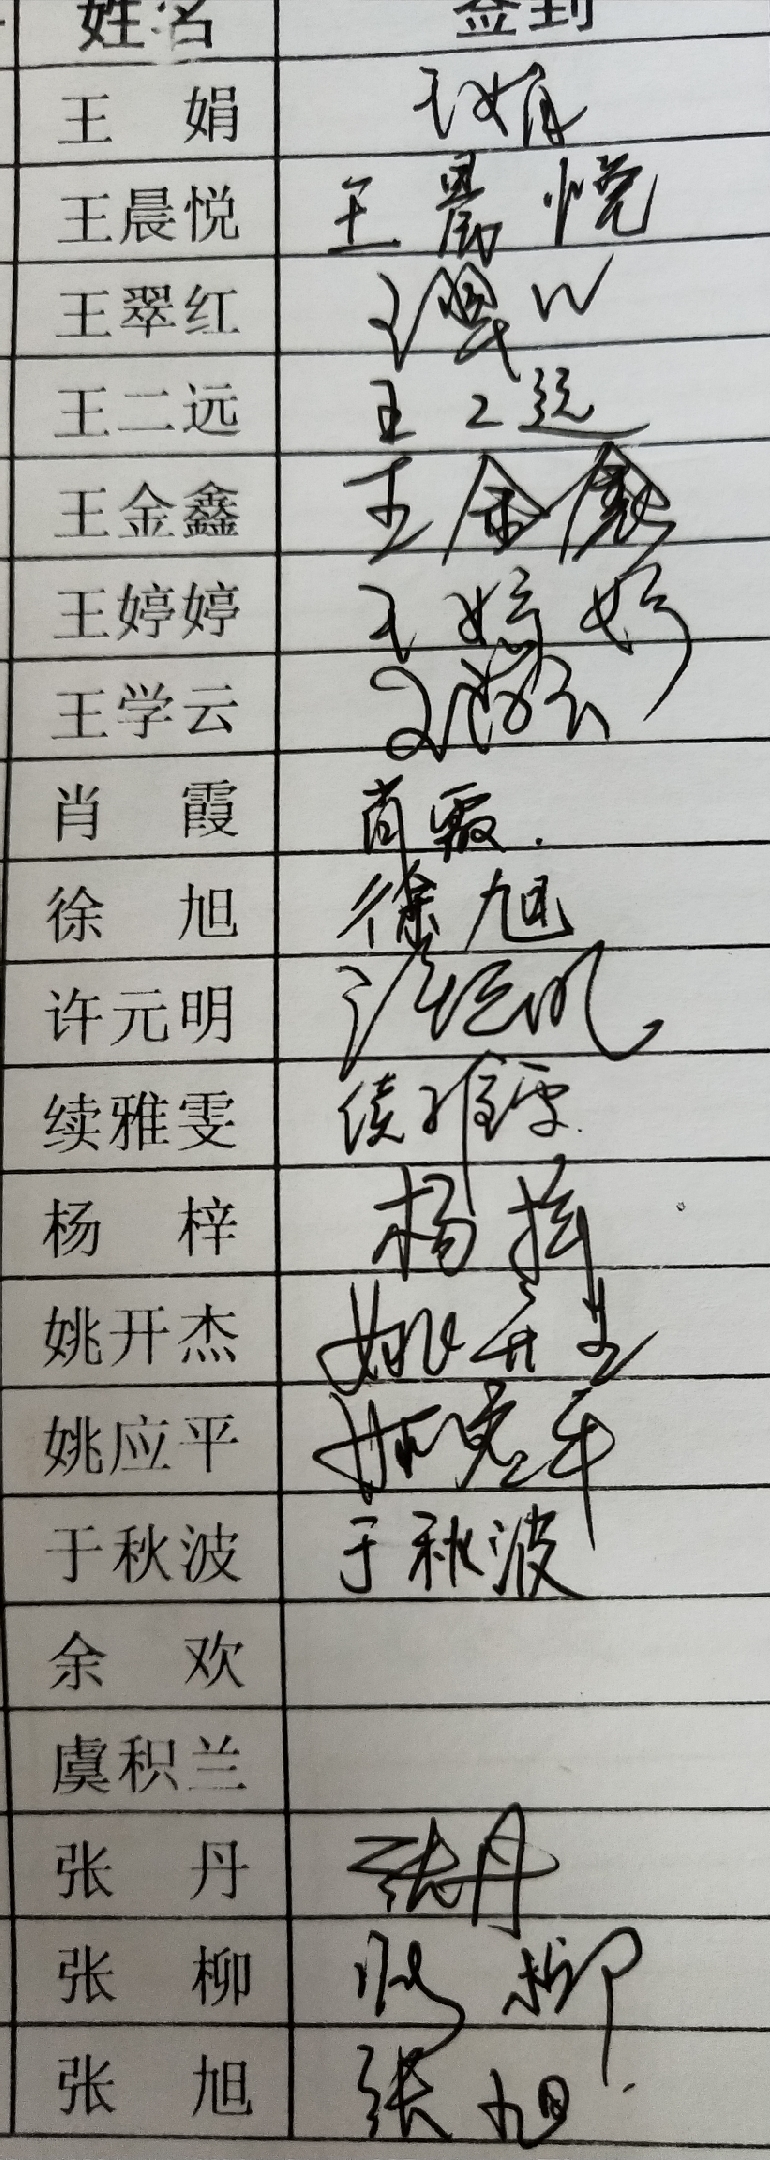 姓名 签到
王娟 王娟
王晨悦 王晨悦
王翠红 王翠红
王二远 王二远
王金鑫 王金鑫
王婷婷 王婷婷
王学云 王学云
肖霞 肖霞.
徐旭 徐旭
许元明 许元明
续雅雯 续雅雯.
杨梓 杨梓
姚开杰 姚开杰
姚应平 姚应平
于秋波 于秋波
余欢
虞积兰
张丹 张丹
张柳 张柳
张旭 张旭